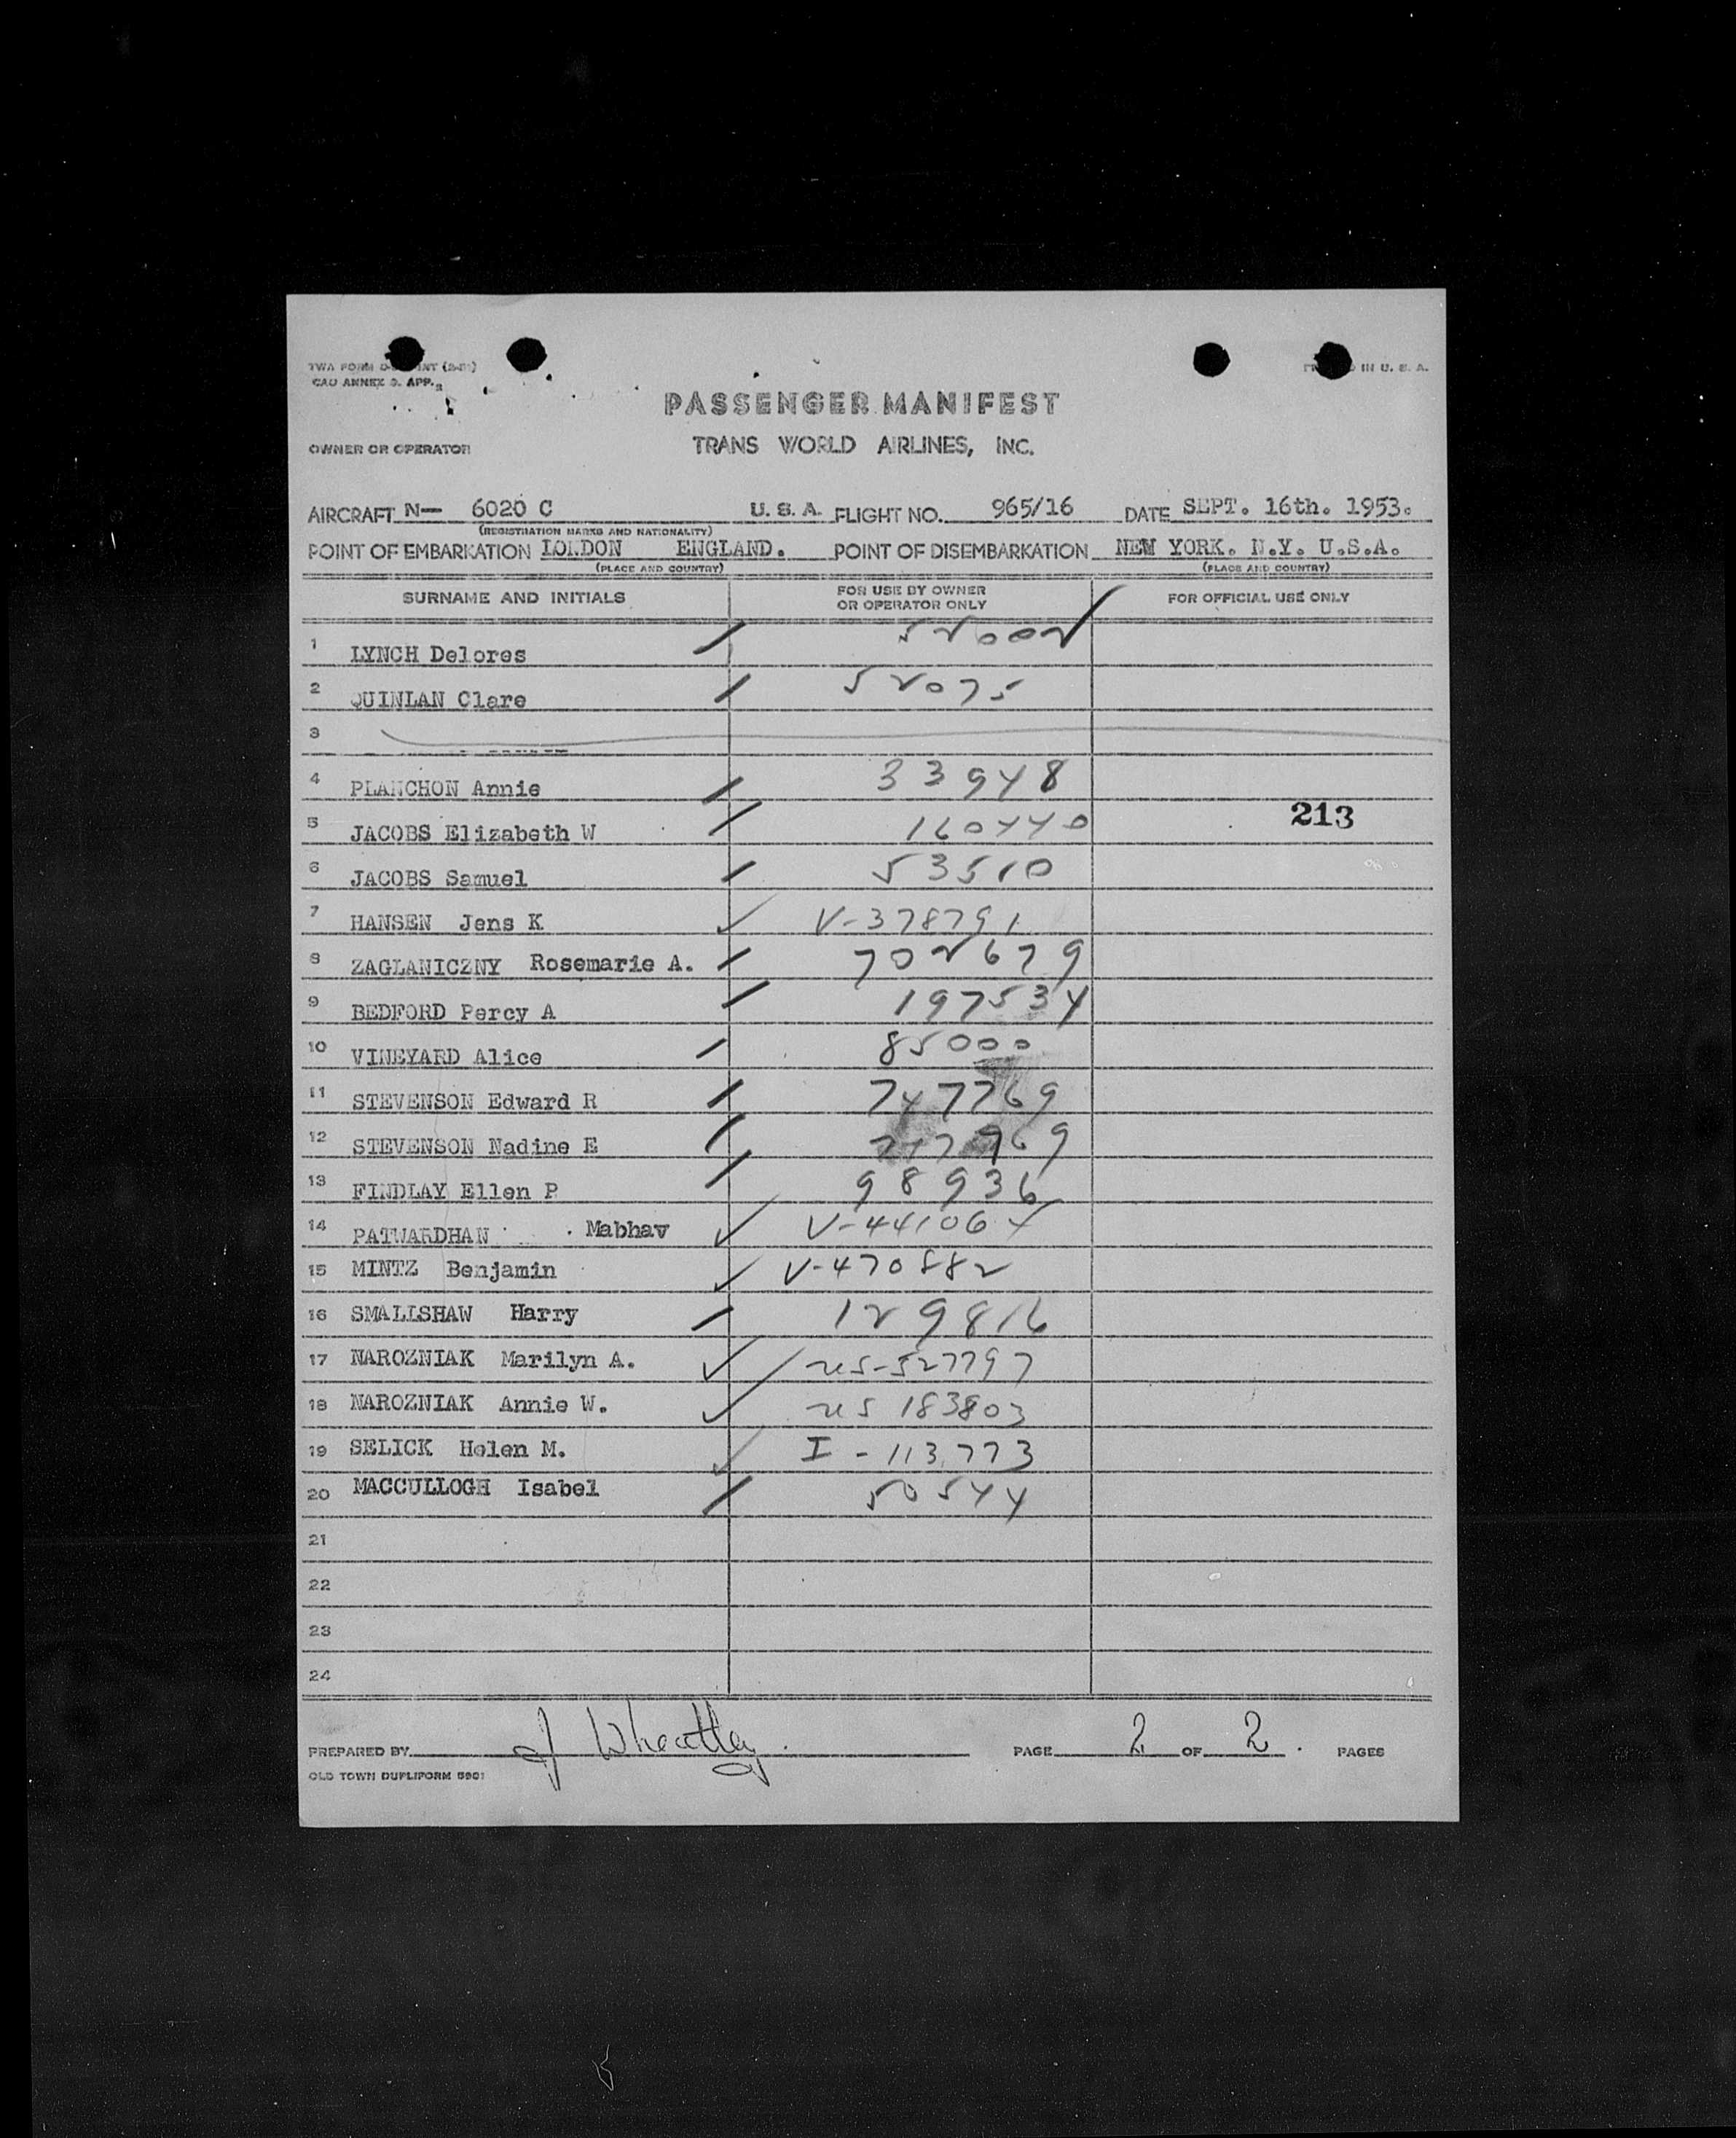 TWA FORM
CAO ANNEX 9. APP.
IN U. S. A.
PASSENGER MANIFEST
OWNER OR OPERATOR TRANS WORLD AIRLINES, INC.
AIRCRAFT N— 6020 C U. S. A. FLIGHT NO. 965/16 DATE SEPT. 16th. 1953.
(REGISTRATION MARKS AND NATIONALITY)
POINT OF EMBARKATION LONDON ENGLAND. POINT OF DISEMBARKATION NEW YORK. N.Y. U.S.A.
(PLACE AND COUNTRY) (PLACE AND COUNTRY)
SURNAME AND INITIALS FOR USE BY OWNER OR OPERATOR ONLY FOR OFFICIAL USE ONLY
1 LYNCH Delores 52002
2 QUINLAN Clare 52075
3
4 PLANCHON Annie 33948
213
5 JACOBS Elizabeth W 160440
6 JACOBS Samuel 53510
7 HANSEN Jens K V-378791
8 ZAGLANICZNY Rosemarie A. 702679
9 BEDFORD Percy A 197534
10 VINEYARD Alice 85000
11 STEVENSON Edward R 747769
12 STEVENSON Nadine E 747769
13 FINDLAY Ellen P 98936
14 PATWARDHAN . Mabhav V-441064
15 MINTZ Benjamin V-470882
16 SMALLSHAW Harry 129816
17 NAROZNIAK Marilyn A. US-527797
18 NAROZNIAK Annie W. US 183803
19 SELICK Helen M. I-113773
20 MACCULLOGH Isabel 50544
21
22
23
24
PREPARED BY J Wheatley. PAGE 2 OF 2. PAGES
OLD TOWN DUPLIFORM